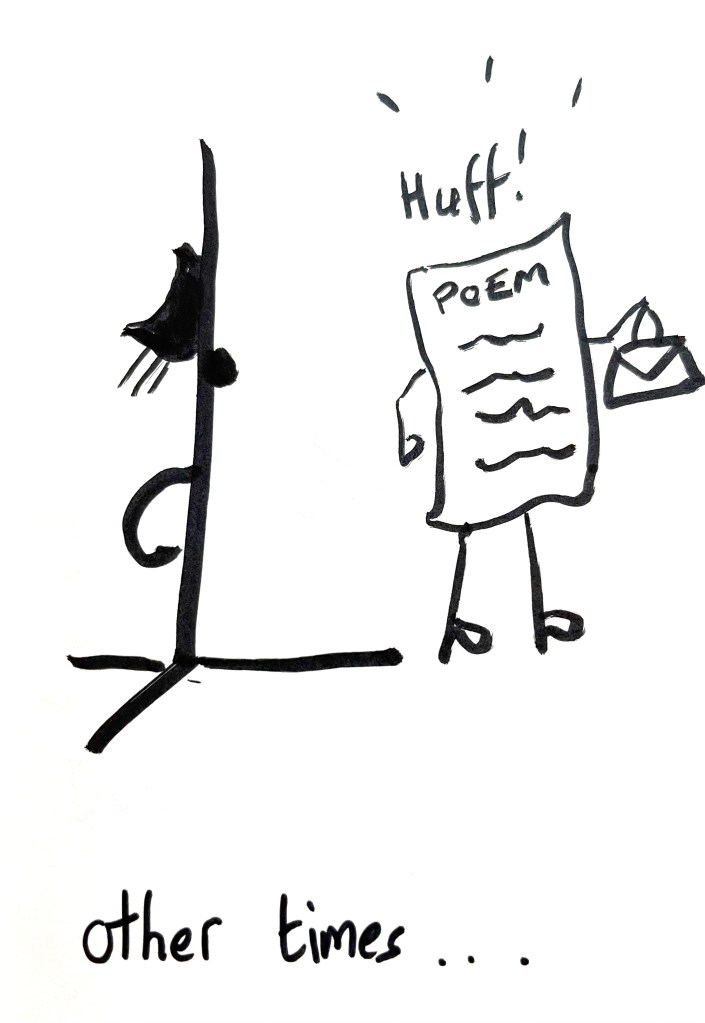 Huff!
POEM
other times...